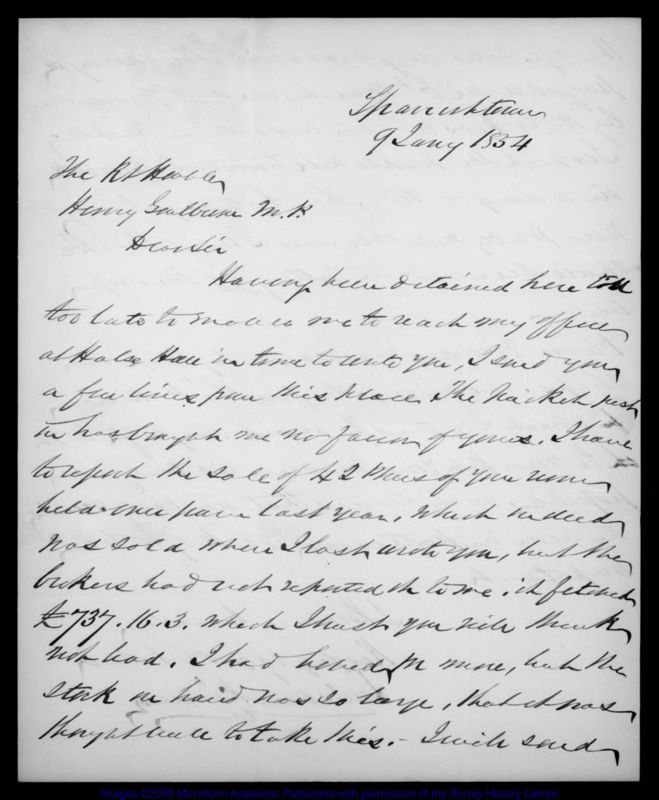 Spanishtown
9 Jany 1834
The Rt Honble
Henry Goulburn M.P.
Dear Sir
Having been detained here till
too late to enable me to reach my office
at Halse Hall in time to write you, I send you
a few lines from this place. The Packet just
in has brought me no favor of yours. I have
to report the sale of 42 of your rum
held over from last year, which indeed
was sold when I last wrote you, but the
brokers had not reported it to me. it fetched
£737.16.3. which I trust you will think
not bad. I had hoped for more, but the
stock in hand was so large, that it was
thought well to take this. - I will send
Images ©2008 Microform Academic Publishers with permission of the Surrey History Centre